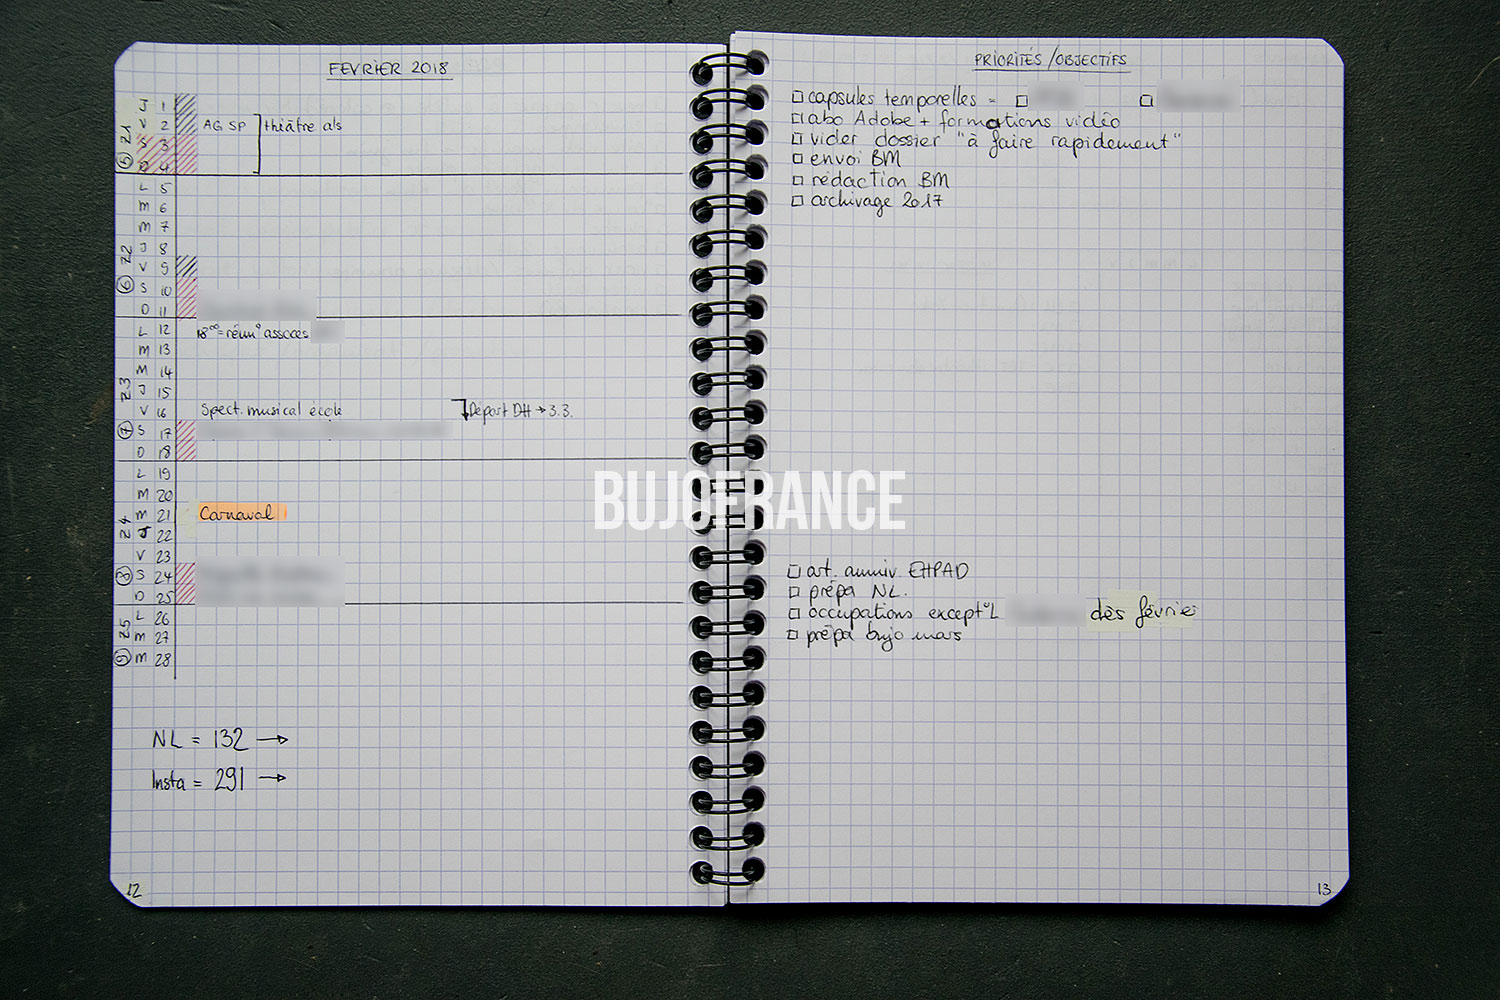 FEVRIER 2018
J 1
V 2 AG SP théâtre als
Z1
S 3
5 D 4
L 5
M 6
M 7
J 8
Z2
V 9
6 S 10
D 11
L 12 18°° = réun° assoces
M 13
M 14
Z3 J 15
V 16 Spect. musical école Départ DH → 3.3.
7 S 17
D 18
L 19
M 20
M 21 Carnaval
Z4 J 22
V 23
8 S 24
D 25
L 26
Z5 M 27
9 M 28
NL = 132 →
Insta = 291 →
12
PRIORITÉS / OBJECTIFS
□ capsules temporelles = □ □
□ abo Adobe + formations vidéo
□ vider dossier "à faire rapidement"
□ envoi BM
□ rédaction BM
□ archivage 2017
□ art. anniv. EHPAD
□ prépa NL.
□ occupations except°L dès février
□ prépa bujo mars
13
BUJOFRANCE